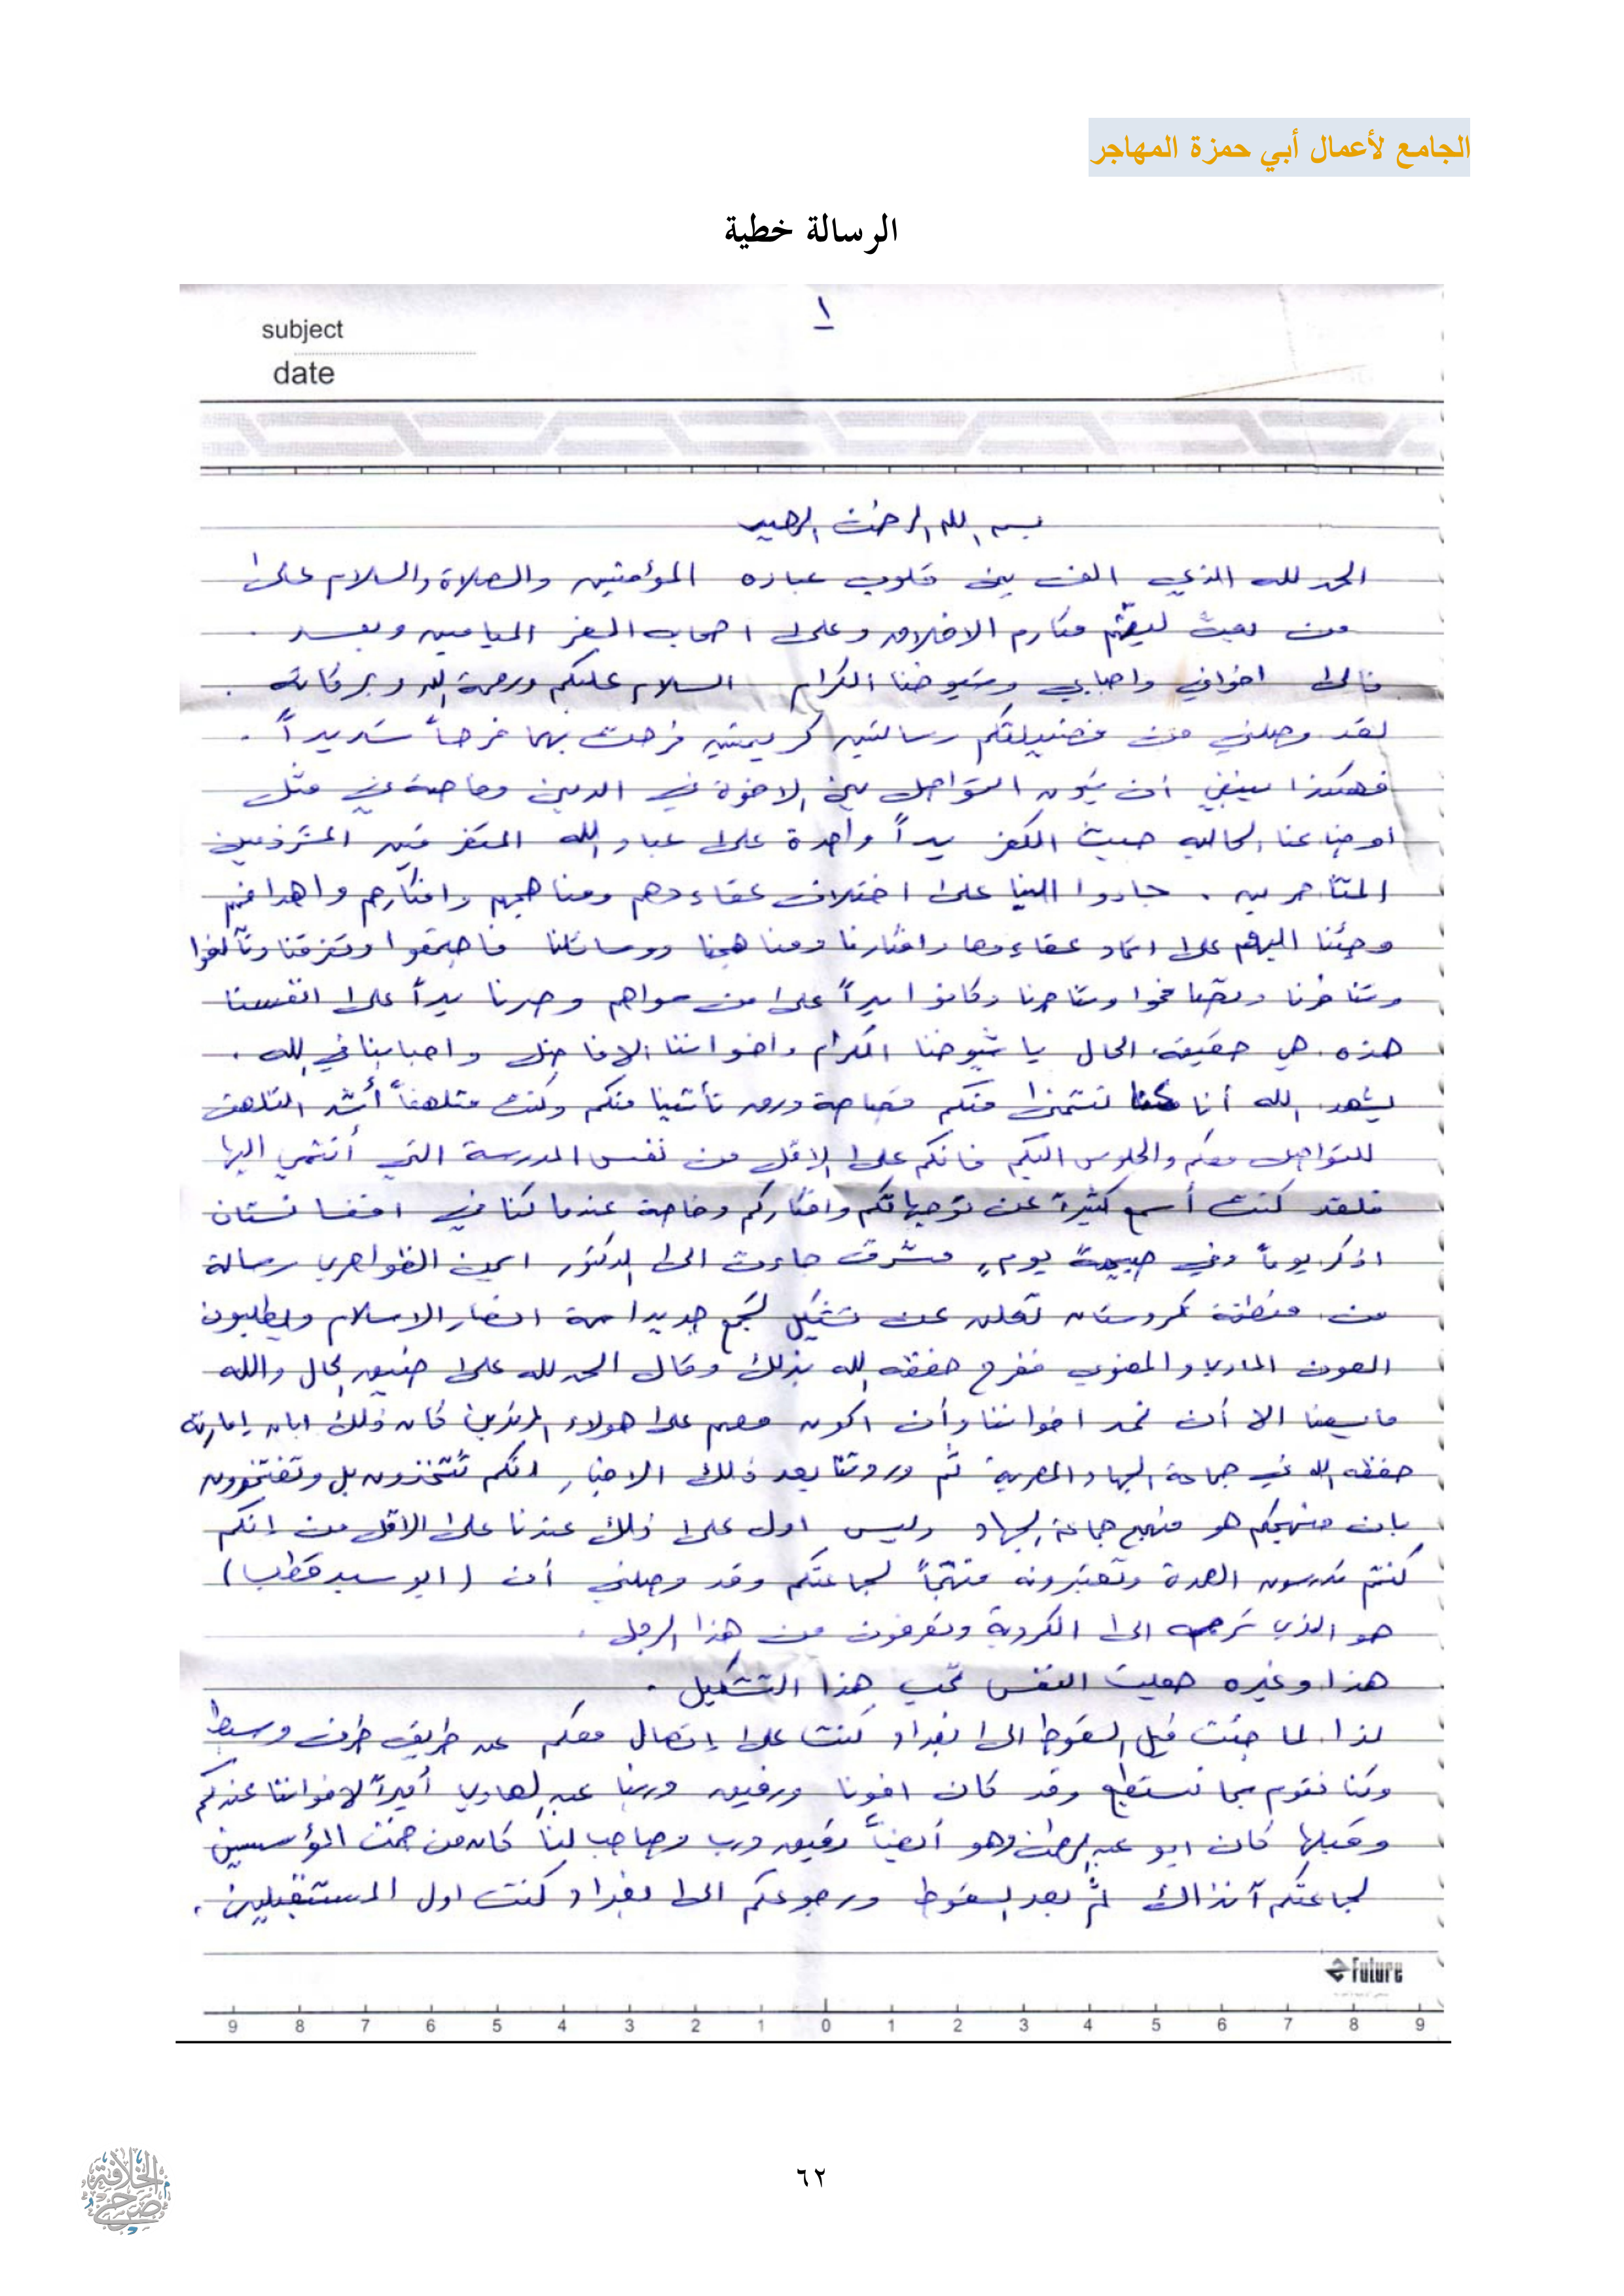 الجامع لأعمال أبي حمزة المهاجر
الرسالة خطية
١
subject
date
بسم الله الرحمن الرحيم
الحمد لله الذي الف بين قلوب عباده المؤمنين والصلاة والسلام على
من بعث ليتمم مكارم الاخلاق وعلى اصحابه الغر الميامين وبعد .
فالى اخواني واحبابي وشيوخنا الكرام السلام عليكم ورحمة الله وبركاته .
لقد وصلني من فضيلتكم رسالتين كريمتين فرحت بهما فرحاً شديداً .
فهكذا ينبغي ان يكون التواصل بين الاخوة في الدين وخاصة في مثل
اوضاعنا الحالية حيث الكفر يداً واحدة على عباد الله المتفرقين المتشرذمين
المتناحرين . جاءوا الينا على اختلاف عقاءدهم ومناهجهم وافكارهم واهدافهم
وجئنا اليهم على اتحاد عقاءدنا وافكارنا ومناهجنا ووسائلنا فاجتمعوا وتفرقنا وتآلفوا
وتنافرنا وتصافحوا وتناحرنا وكانوا يداً على من سواهم وصرنا يداً على انفسنا
هذه هي حقيقة الحال يا شيوخنا الكرام واخواننا الافاضل واحبابنا في الله .
يشهد الله أنا كنا نتمنى منكم قصاصة ورق تأتينا منكم وكنت متلهفاً أشد التلهف
للتواصل معكم والجلوس اليكم فانكم على الاقل من نفس المدرسة التي أنتمي اليها
فلقد كنت أسمع كثيرة عن توجهاتكم وافكاركم وخاصة عندما كنا في افغانستان
اذكر يوماً وفي صبيحة يومٍ مشرق جاءت الى الدكتور ايمن الظواهري رسالة
من منطقة كردستان تعلن عن تشكيل تجمع جديد اسمه انصار الاسلام ويطلبون
العون المادي والمعنوي ففرح حفظه الله بذلك وقال الحمد لله على ضيق الحال والله
ما يسعنا الا أن نمد اخواننا وأن اكون معهم على هولاء المرتدين كان ذلك ابان إمارته
حفظه الله في جماعة الجهاد المصرية ثم وردتنا بعد ذلك الاخبار انكم تتخذون بل وتفتخرون
بان منهجكم هو منهج جماعة الجهاد وليس ادل على ذلك عندنا على الاقل من إنكم
كنتم تدرسون العمدة وتعتبرونه منهجاً لجماعتكم وقد وصلني أن (ابو سيد قطب)
هو الذي ترجمه الى الكردية وتعرفون من هذا الرجل .
هذا وغيره جعلت النفس تحب هذا التشكيل .
لذا لما جئت قبل السقوط الى بغداد كنت على إتصال معكم عن طريق طرف وسيط
وكنا نقوم بما نستطيع وقد كان اخونا ورفيق دربنا عبد الهادي أميراً لاخواننا عندكم
وقبلها كان ابو عبد الرحمن وهو أيضاً رفيق درب وصاحب لنا كان من ضمن المؤسسين
لجماعتكم آنذاك ثم بعد السقوط ورجوعكم الى بغداد كنت اول المستقبلين .
Future
9 8 7 6 5 4 3 2 1 0 1 2 3 4 5 6 7 8 9
٦٢